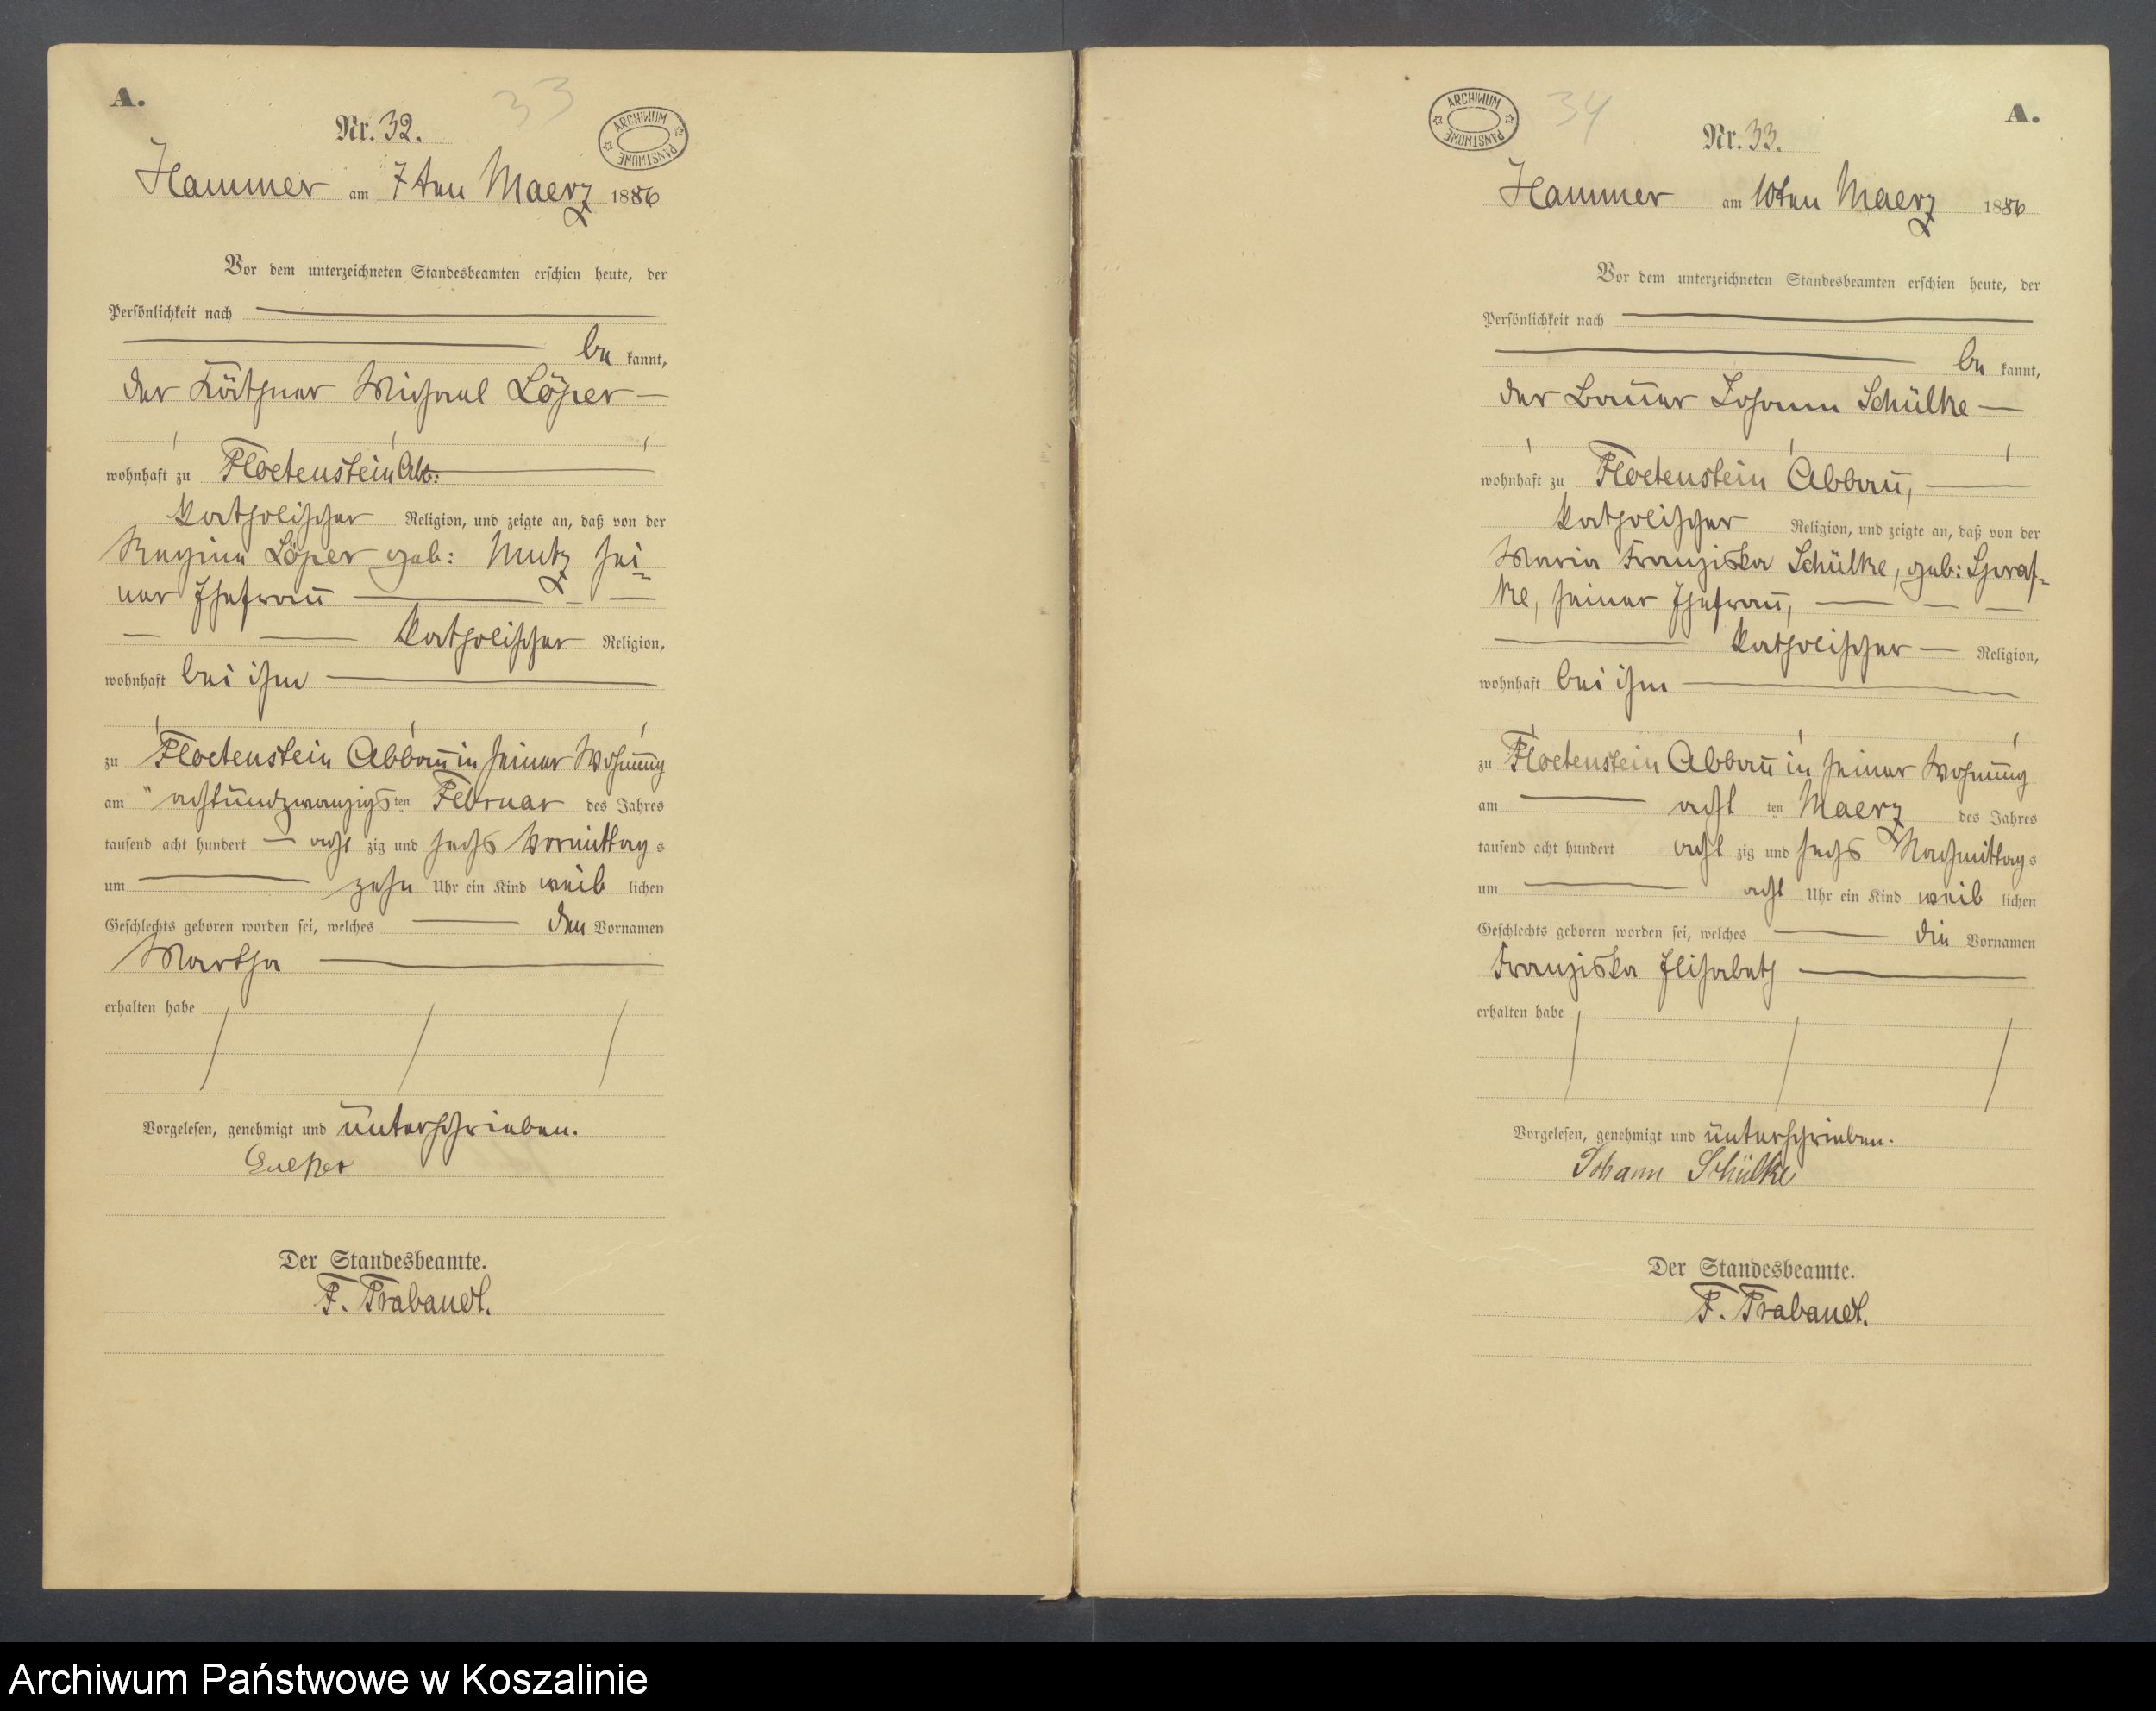 A.
33
Nr. 32.
ARCHIWUM PAŃSTWOWE
Hammer am 7ten Maerz 1886
Vor dem unterzeichneten Standesbeamten erschien heute, der
Persönlichkeit nach
be kannt,
der Käthner Michael Löper
wohnhaft zu Floetenstein Abb:
katholischer Religion, und zeigte an, daß von der
Regine Löper geb: Mutz sei-
ner Ehefrau
katholischer Religion,
wohnhaft bei ihm
zu Floetenstein Abbau in seiner Wohnung
am achtundzwanzigsten Februar des Jahres
tausend acht hundert acht zig und sechs Vormittags
um zehn Uhr ein Kind weib lichen
Geschlechts geboren worden sei, welches den Vornamen
Martha
erhalten habe
Vorgelesen, genehmigt und unterschrieben.
Der Standesbeamte.
F. Trabandt.
A.
34
Nr. 33.
ARCHIWUM PAŃSTWOWE
Hammer am 10ten Maerz 1886
Vor dem unterzeichneten Standesbeamten erschien heute, der
Persönlichkeit nach
be kannt,
der Bauer Johann Schülke
wohnhaft zu Floetenstein Abbau,
katholischer Religion, und zeigte an, daß von der
Maria Franziska Schülke, geb:
ke, seiner Ehefrau,
katholischer Religion,
wohnhaft bei ihm
zu Floetenstein Abbau in seiner Wohnung
am acht ten Maerz des Jahres
tausend acht hundert acht zig und sechs Nachmittags
um acht Uhr ein Kind weib lichen
Geschlechts geboren worden sei, welches die Vornamen
Franziska Elisabeth
erhalten habe
Vorgelesen, genehmigt und unterschrieben.
Johann Schülke
Der Standesbeamte.
F. Trabandt.
Archiwum Państwowe w Koszalinie